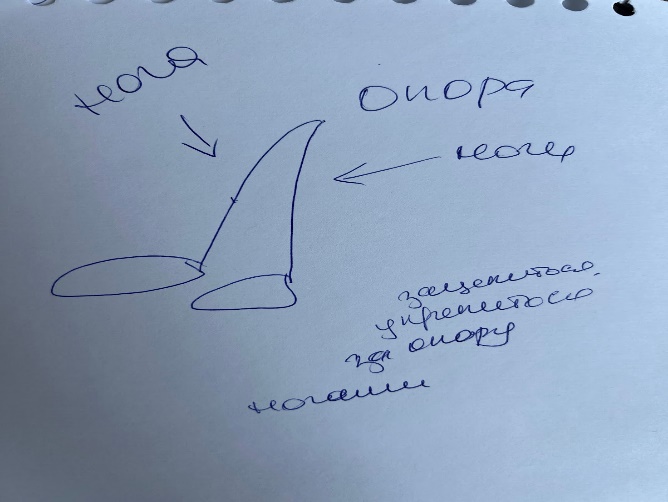 нога
опора
ноги
зацепиться
укрепиться
за опору
ногами